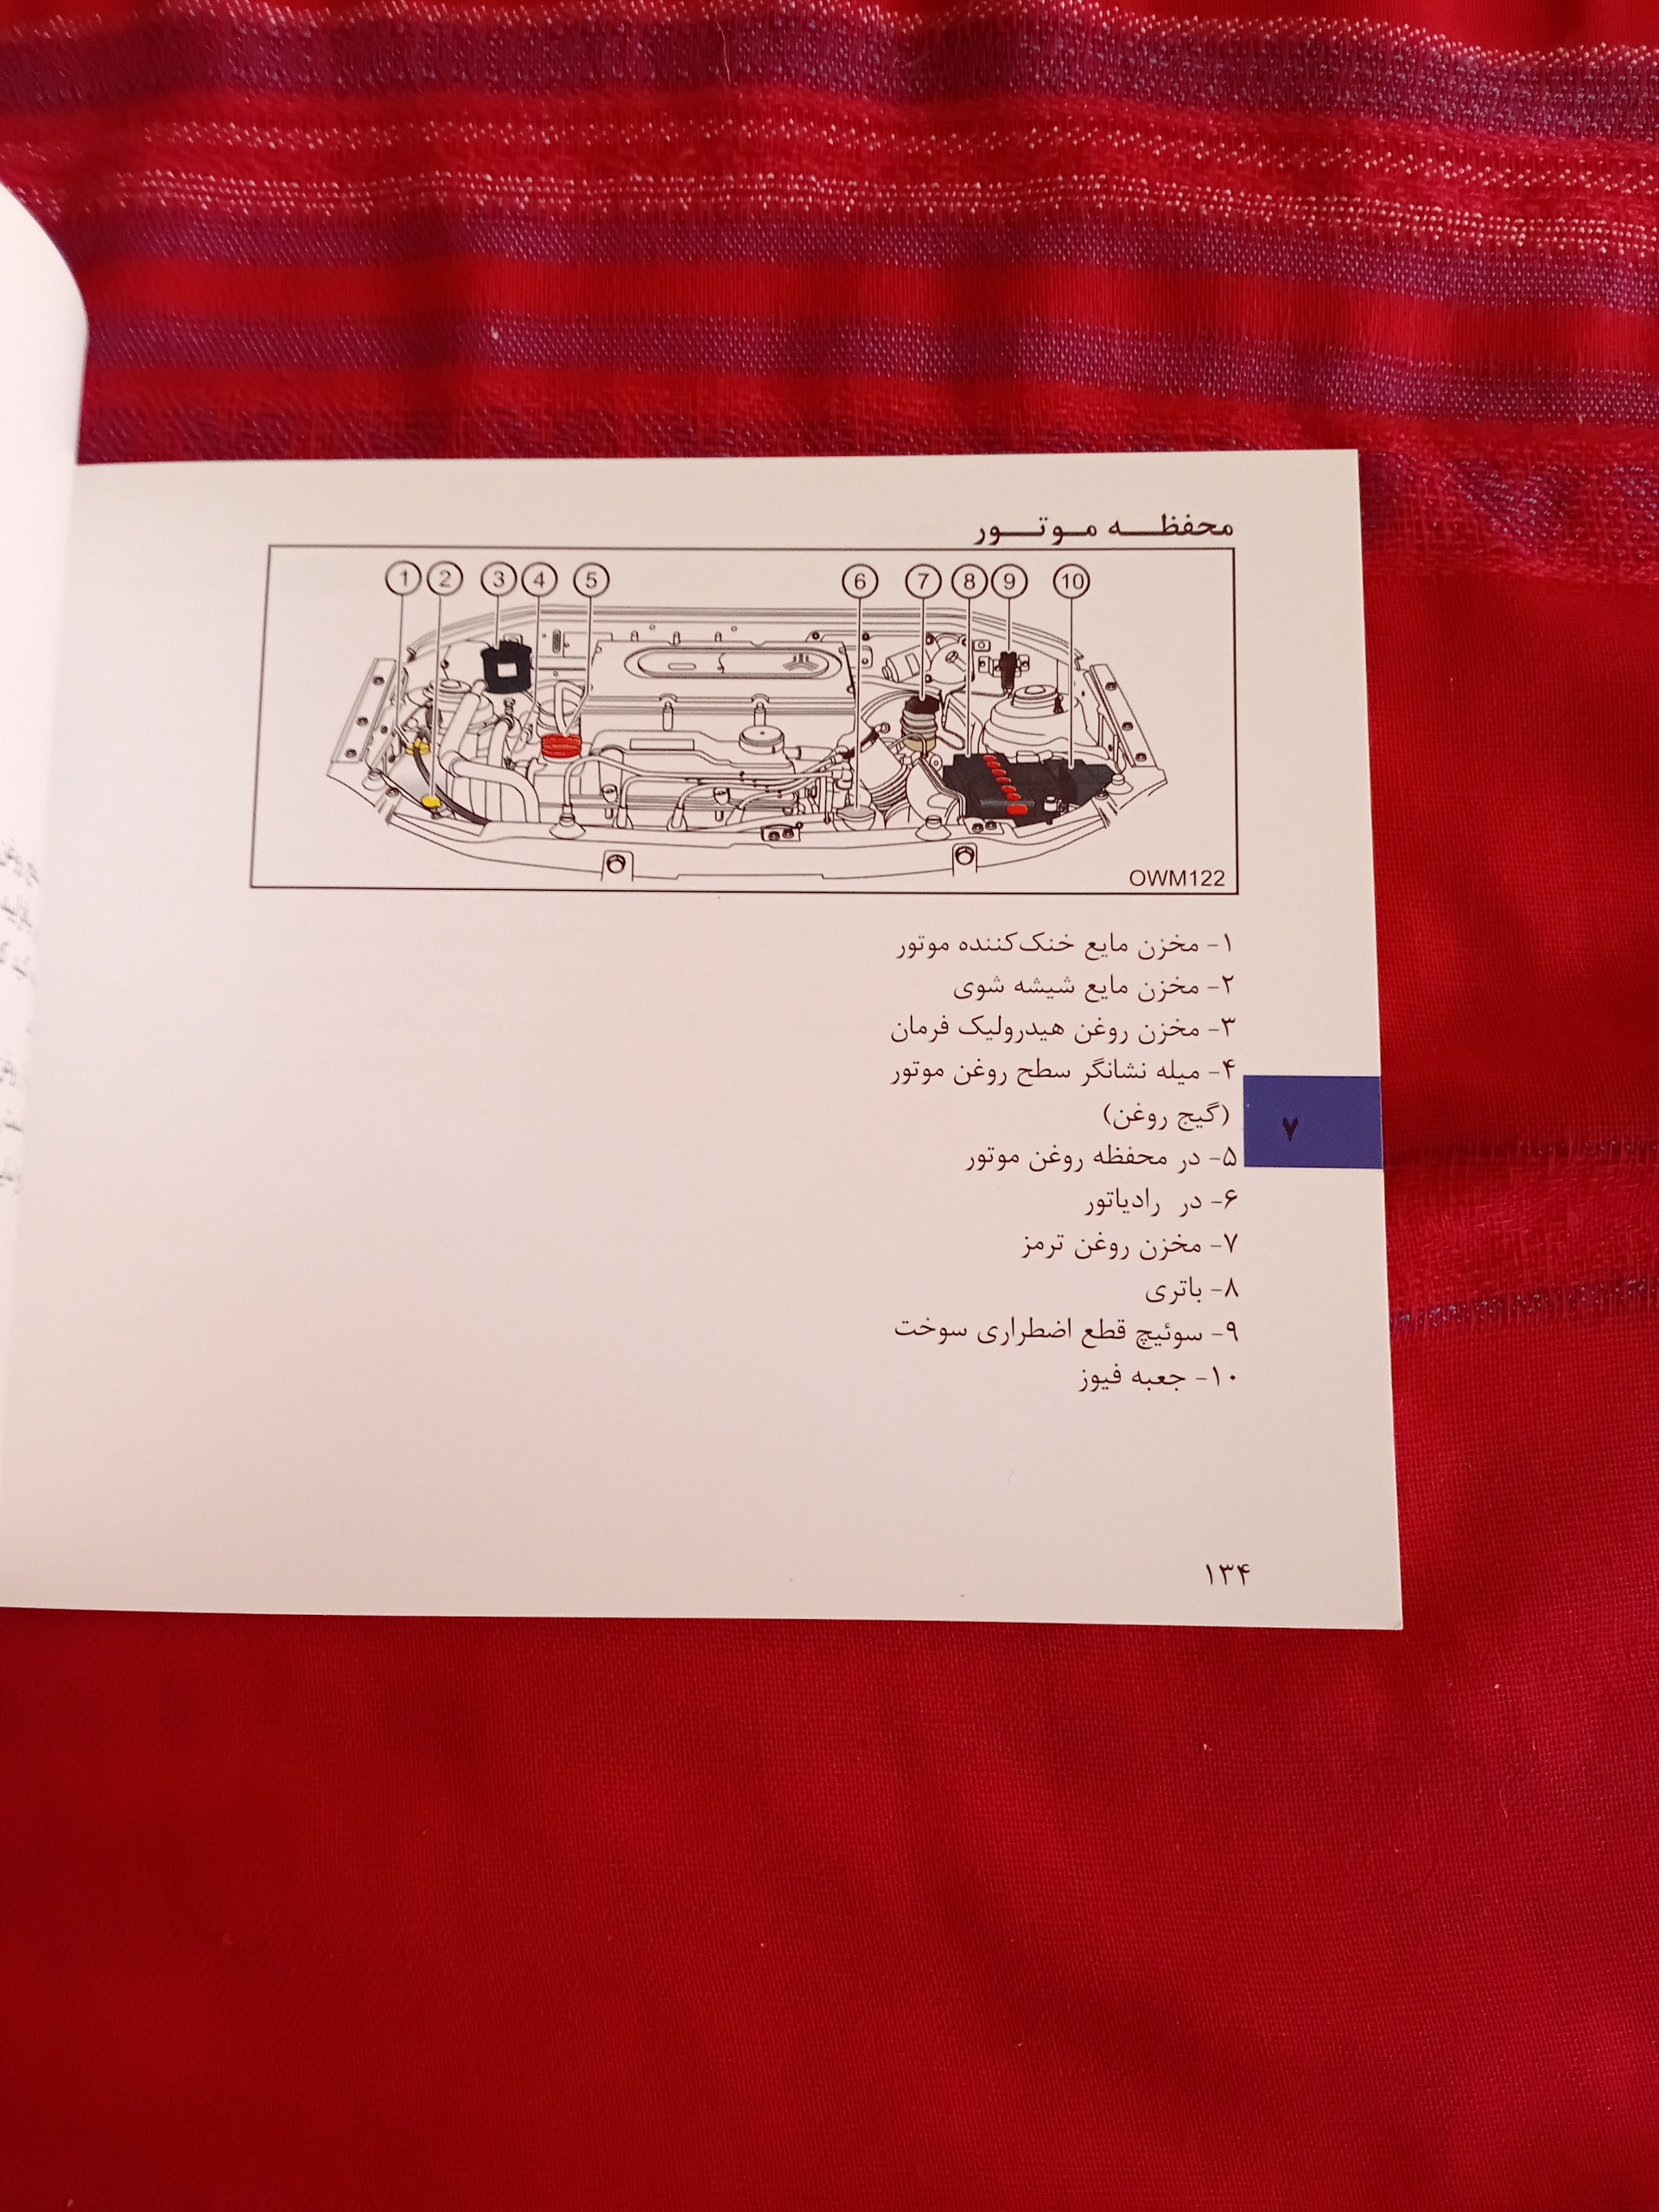 محفظه موتور
1 2 3 4 5 6 7 8 9 10
OWM122
۱- مخزن مایع خنک‌کننده موتور
۲- مخزن مایع شیشه شوی
۳- مخزن روغن هیدرولیک فرمان
۴- میله نشانگر سطح روغن موتور
(گیج روغن)
۵- در محفظه روغن موتور
۶- در رادیاتور
۷- مخزن روغن ترمز
۸- باتری
۹- سوئیچ قطع اضطراری سوخت
۱۰- جعبه فیوز
۷
۱۳۴